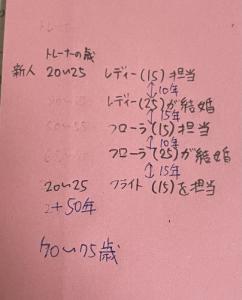 トレーナーの歳
新人 20〜25 レディー(15)担当
↕10年
レディー(25)が結婚
↕15年
フローラ(15)担当
↕10年
フローラ(25)が結婚
↕15年
20〜25 フライト(15)を担当
2+50年
70〜75歳